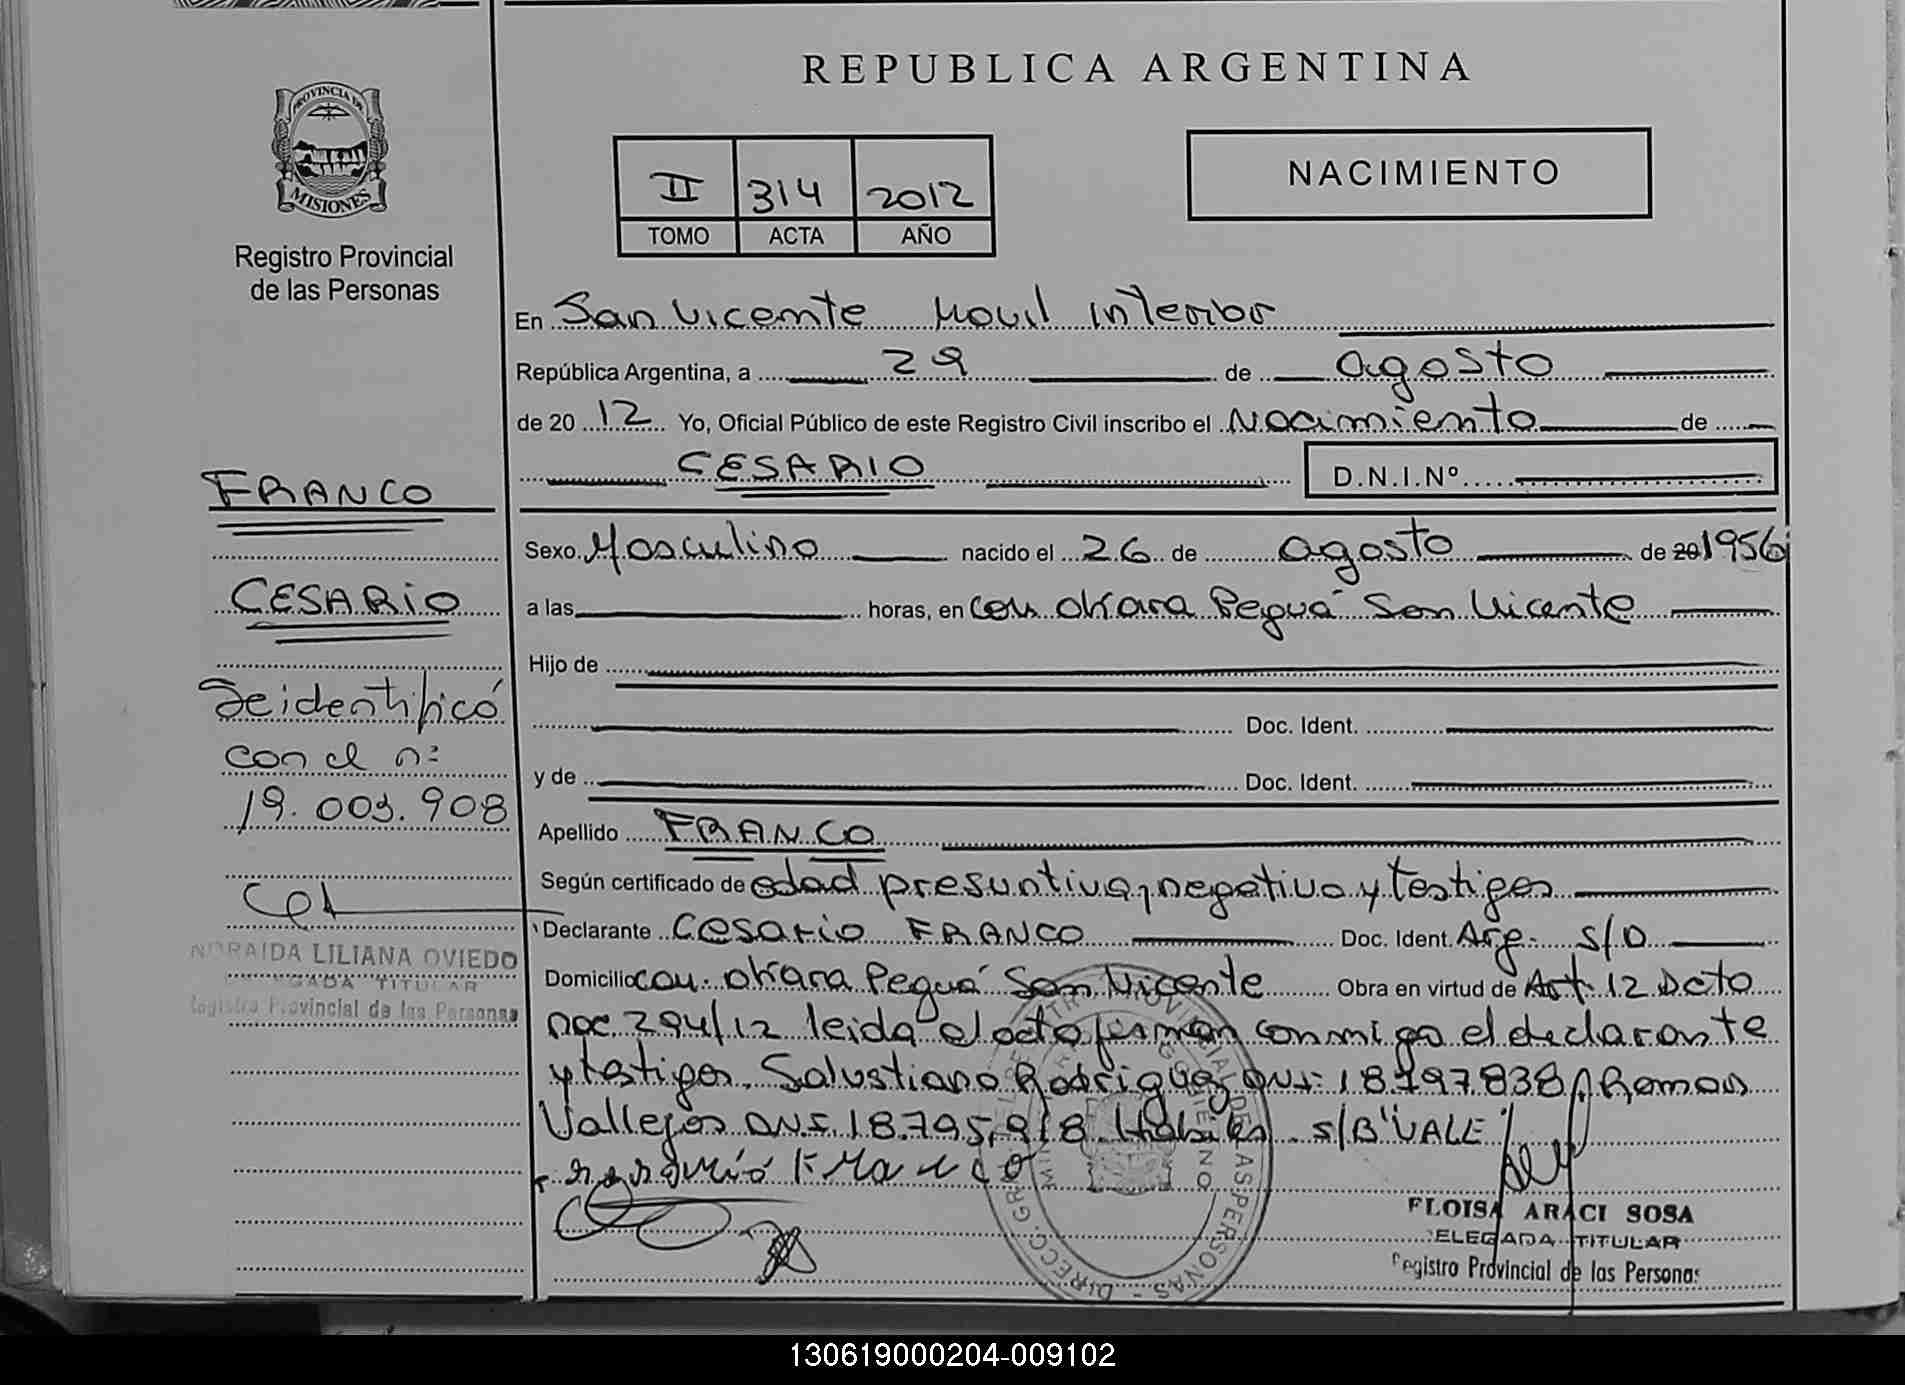 REPUBLICA ARGENTINA
PROVINCIA DE
MISIONES
Registro Provincial
de las Personas
II 314 2012
TOMO ACTA AÑO
NACIMIENTO
En San Vicente Movil interior
República Argentina, a 29 de agosto
de 20 12 Yo, Oficial Público de este Registro Civil inscribo el Nacimiento de
CESARIO D.N.I.Nº
Sexo Masculino nacido el 26 de agosto de 20 1956
a las horas, en Col. Okara Peguá San Vicente
Hijo de
Doc. Ident.
y de Doc. Ident.
Apellido FRANCO
Según certificado de edad presuntiva, negativo y testigos
Declarante Cesario FRANCO Doc. Ident. Arg. S/D
Domicilio Col. Okara Peguá San Vicente Obra en virtud de Art. 12 Dcto
Nac 294/12 leida el acta firman conmigo el declarante
y testigos. Salustiano Rodriguez DNI: 18.797.838 Ramon
Vallejos DNI. 18.795.918 Habiles. S/B "VALE"
Franco
FRANCO
CESARIO
Se identificó
con el nº
19.003.908
NORAIDA LILIANA OVIEDO
DELEGADA TITULAR
Registro Provincial de las Personas
ELOISA ARACI SOSA
DELEGADA TITULAR
Registro Provincial de las Personas
130619000204-009102